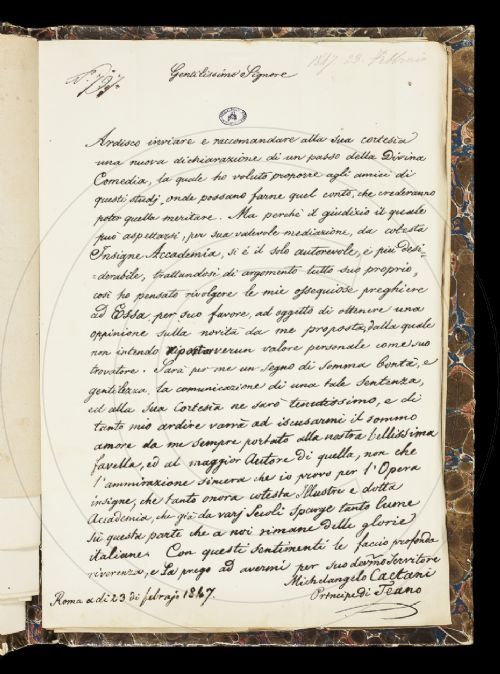 N. 727.
1847 23. Febbraio
Gentilissimo Signore
Ardisco inviare e raccomandare alla Sua cortesia
una nuova dichiarazione di un passo della Divina
Comedia, la quale ho voluto proporre agli amici di
questi studj, onde possano farne quel conto, che crederanno
poter quella meritare. Ma perchè il giudizio il quale
può aspettarsi, per sua valevole mediazione, da cotesta
Insigne Accademia, si é il solo autorevole, e più desi-
-derabile, trattandosi di argomento tutto suo proprio,
così ho pensato rivolgere le mie ossequiose preghiere
ad Essa, per suo favore, ad oggetto di ottenere una
oppinione sulla novità da me proposta, dalla quale
non intendo verun valore personale come suo
trovatore. Sarà per me un segno di somma bontà, e
gentilezza la comunicazione di una tale sentenza,
ed alla Sua Cortesia ne sarò tenutissimo, e di
tanto mio ardire varrà ad iscusarmi il sommo
amore da me sempre portato alla nostra bellissima
favella, ed al maggior Autore di quella, non che
l'ammirazione sincera che io provo per l'Opera
insigne, che tanto onora cotesta Illustre e dotta
Accademia, che già da varj Secoli sparge tanto lume
su questa parte che a noi rimane delle glorie
italiane. Con questi sentimenti le faccio profonda
riverenza, e La prego ad avermi per Suo devmo Servitore
Michelangelo Caetani
Principe di Teano
Roma a di 23 di febrajo 1847.